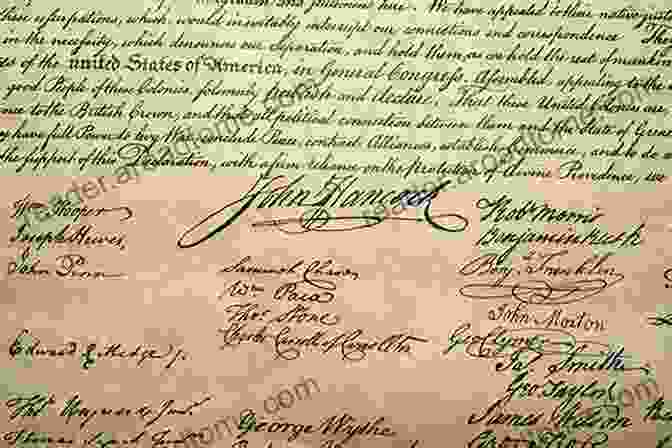 here. We have appealed to their native
these usurpations, which, would inevitably interrupt our connections and correspondence.
in the necessity, which denounces our Separation, and hold them, as we hold the rest of mankind
of the united States of America, in General Congress, Assembled, appealing to the
good People of these Colonies, solemnly publish and declare, That these United Colonies are
to the British Crown, and that all political connection between them and the State of Great
have full Power to levy War, conclude Peace, contract Alliances, establish Commerce, and to do
the support of this Declaration, with a firm reliance on the Protection of divine Providence, we
John Hancock
Wm Hooper
Joseph Hewes,
John Penn
Edward Rutledge
Samuel Chase
Wm Paca
Thos Stone
Charles Carroll of Carrollton
George Wythe
Robt Morris
Benjamin Rush
Benja Franklin
John Morton
Geo Clymer
Jas Smith
Geo Taylor
James Wilson